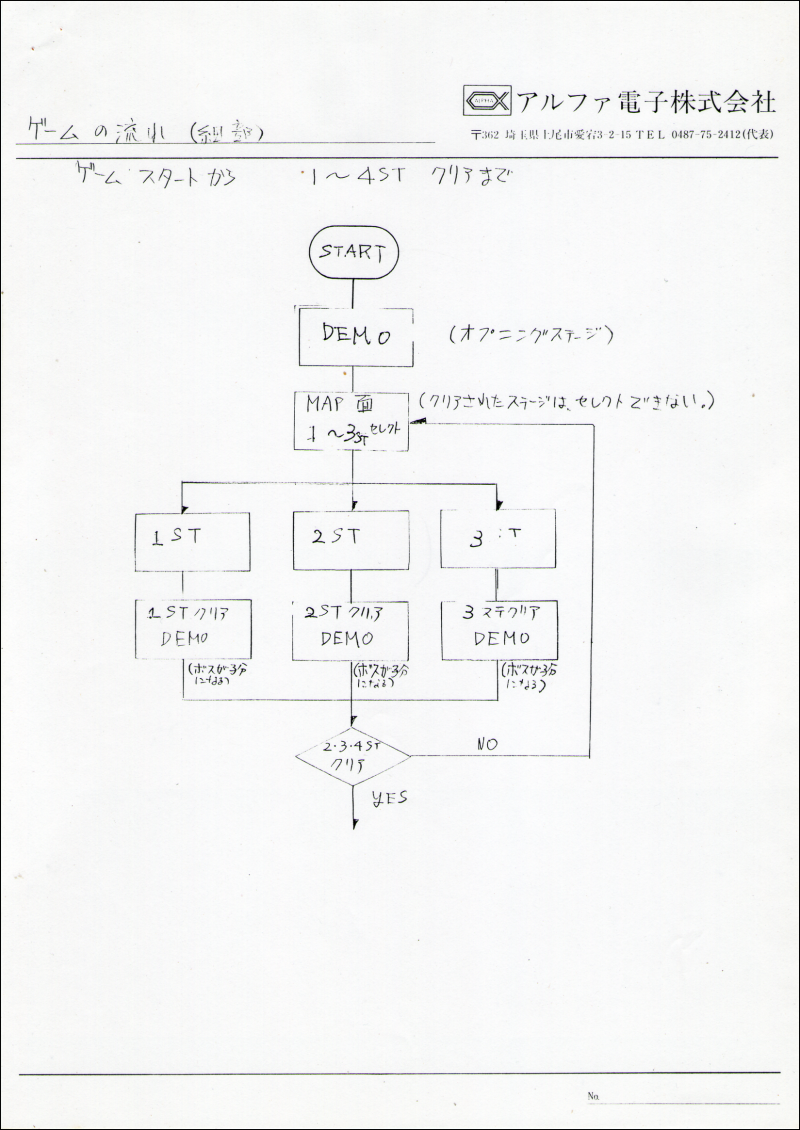 ALPHA
アルファ電子株式会社
〒362 埼玉県上尾市愛宕3-2-15 TEL 0487-75-2412(代表)
ゲームの流れ (細部)
ゲームスタートから 1〜4ST クリアまで
START
DEMO
(オプニングステージ)
MAP 面
(クリアされたステージは、セレクトできない。)
1〜3ST セレクト
1ST
2ST
3 T
1STクリア
DEMO
2STクリア
DEMO
3ステクリア
DEMO
(ボスが3分
になる)
(ボスが3分
になる)
(ボスが3分
になる)
2・3・4ST
クリア
NO
YES
No.